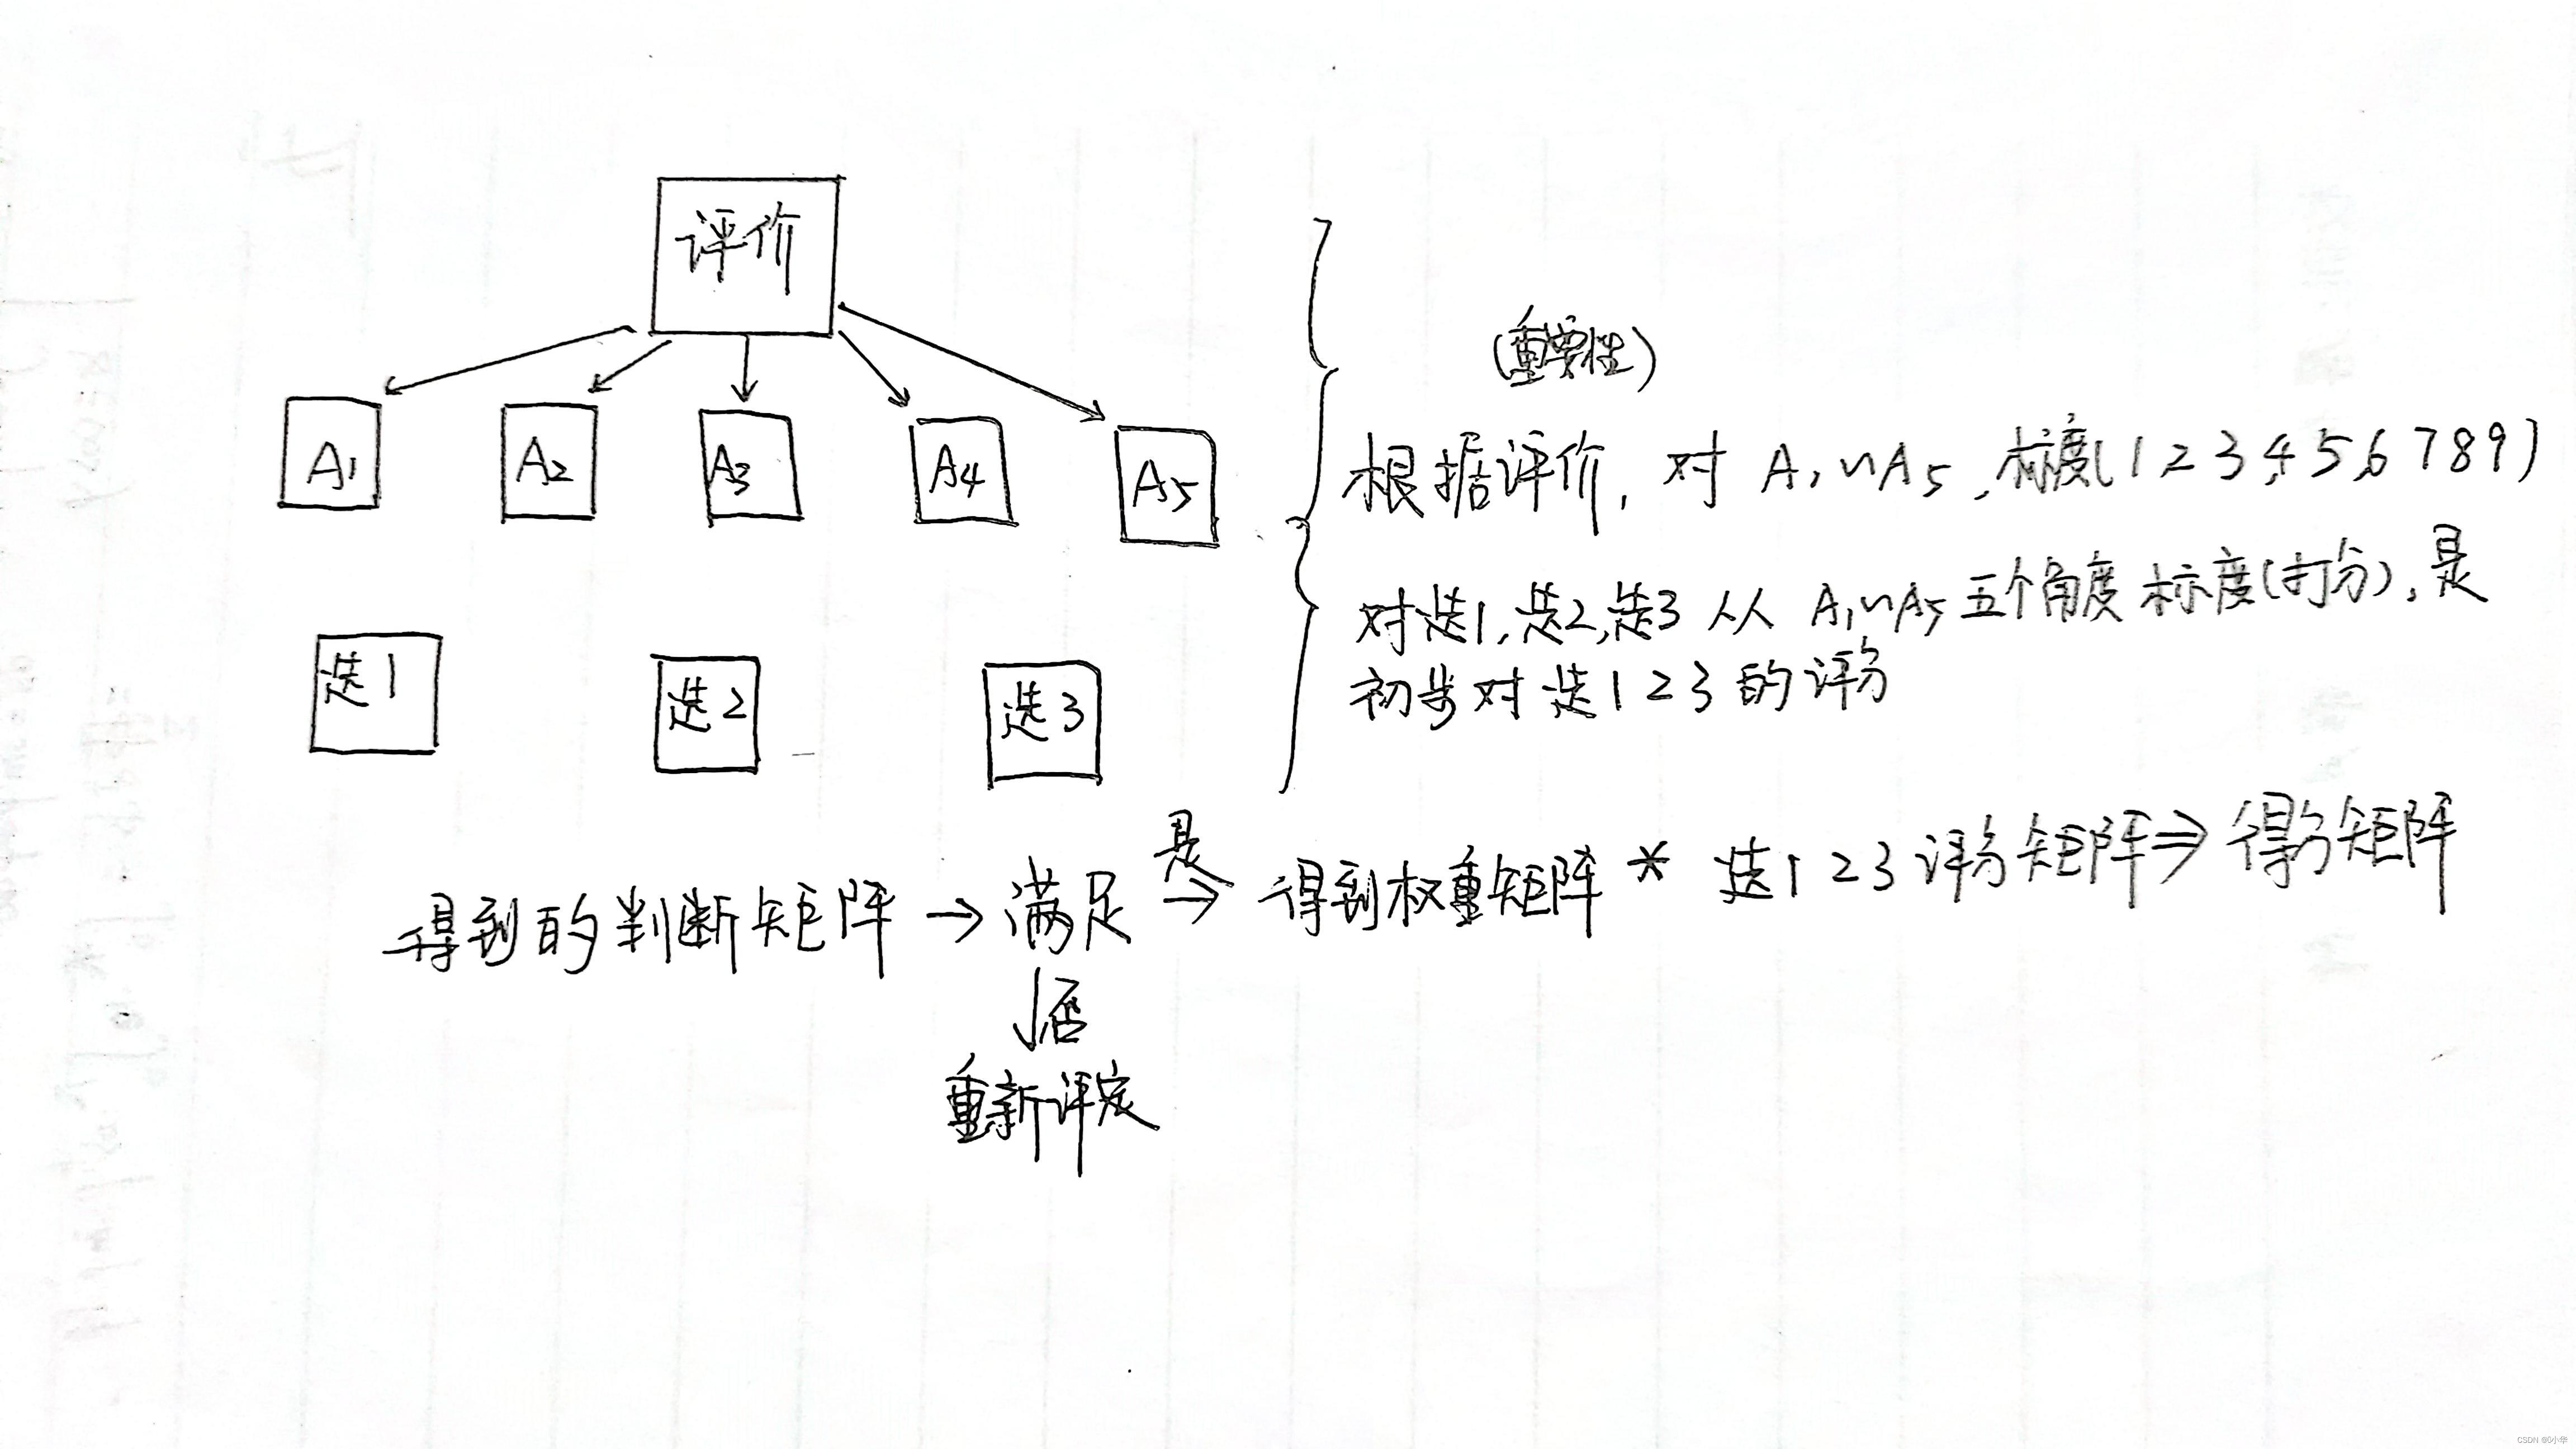 评价
A1 A2 A3 A4 A5
选1 选2 选3
(重要性)
根据评价, 对 A1~A5, 标度(1 2 3 4 5 6 7 8 9)
对选1,选2,选3 从 A1~A5 五个角度标度(打分), 是
初步对选1 2 3 的评分
得到的判断矩阵 → 满足 是→ 得到权重矩阵 * 选1 2 3 评分矩阵 ⇒ 得分矩阵
↓否
重新评定
CSDN @小华